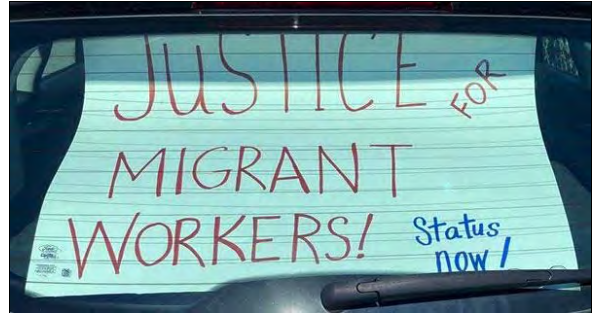 JUSTICE FOR
MIGRANT
WORKERS!
Status
now!